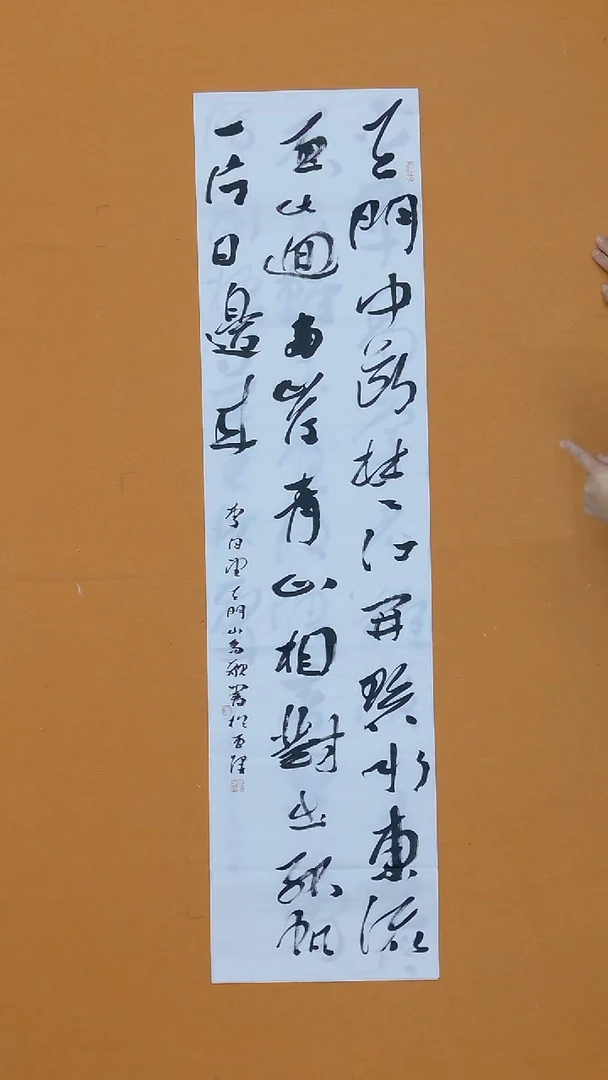 天門中斷楚江開碧水東流
至此迴兩岸青山相對出孤帆
一片日邊來
李白望天門山